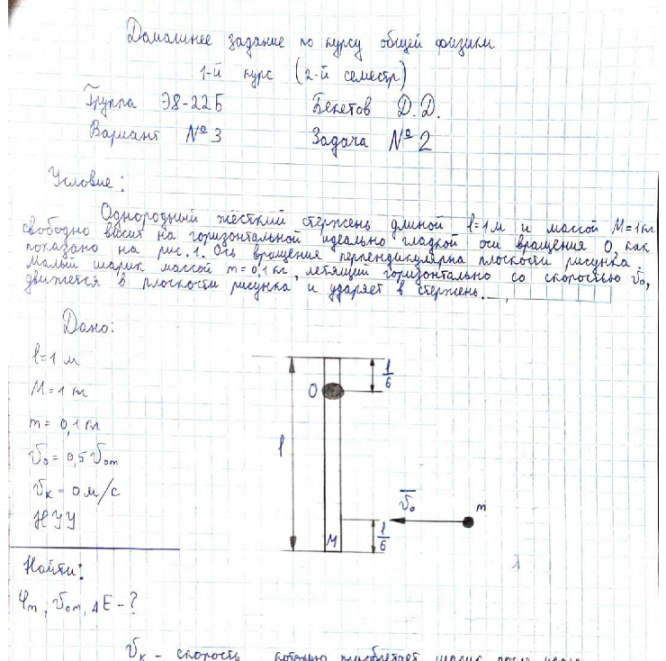 Домашнее задание по курсу общей физики
1-й курс (2-й семестр)
Группа Э8-22Б Бекетов Д.Д.
Вариант №3 Задача №2
Условие:
Однородный жёсткий стержень длиной l=1м и массой M=1кг
свободно висит на горизонтальной идеально гладкой оси вращения O, как
показано на рис.1. Ось вращения перпендикулярна плоскости рисунка.
Малый шарик массой m=0,1кг, летящий горизонтально со скоростью v̄₀,
движется в плоскости рисунка и ударяет в стержень.
Дано:
l=1 м
M=1 кг
m=0,1кг
v₀=0,5v₀m
vк=0м/с
НУУ
l/6
O
l
v̄₀
m
l/6
M
Найти:
φm, v₀m, ΔE-?
vк - скорость